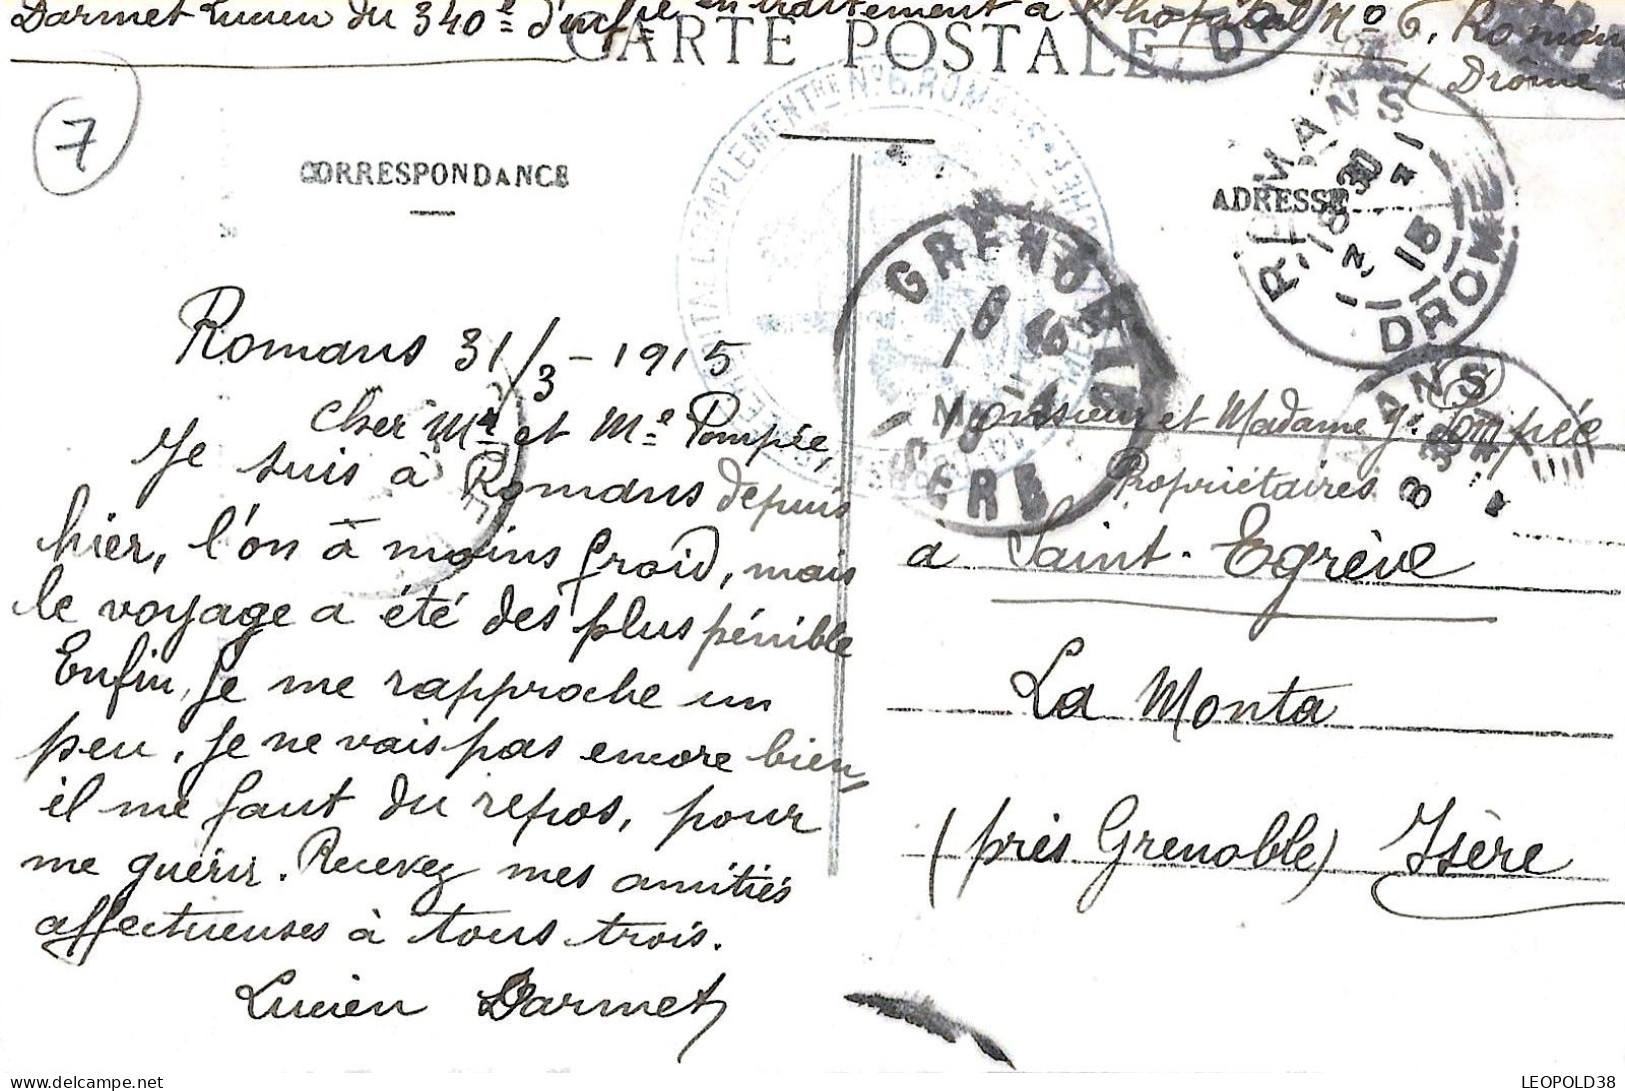 Darmet Lucien du 340e d'infie en traitement à l'hôpital No 6, Romans
(Drôme
CARTE POSTALE
7
CORRESPONDANCE
ADRESSE
ROMANS
DROME
18 30
31 3
15
GRENOBLE
ISERE
Romans 31/3 - 1915
Cher Mr et Me Pompée,
Je suis à Romans depuis
hier, l'on à moins froid, mais
le voyage a été des plus pénible
Enfin, je me rapproche un
peu, je ne vais pas encore bien,
il me faut du repos, pour
me guérir. Recevez mes amitiés
affectueuses à tous trois.
Lucien Darmet
Monsieur et Madame Je Pompée
Propriétaires
à Saint-Egrève
La Monta
(près Grenoble) Isère
delcampe.net
LEOPOLD38